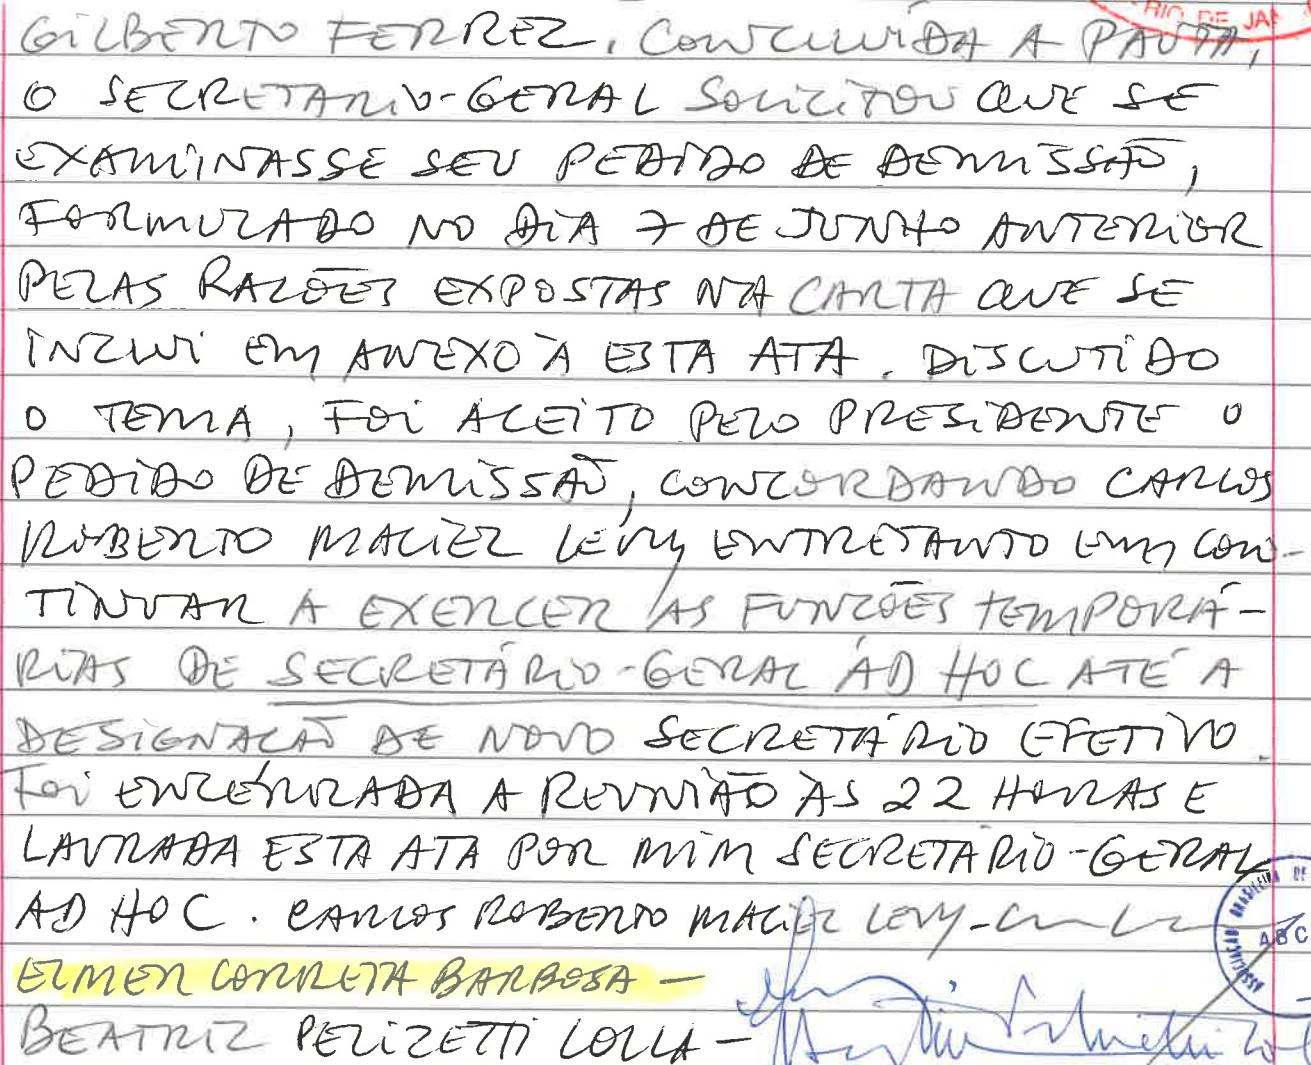 RIO DE JAN
GILBERTO FERREZ. CONCLUIDA A PAUTA,
O SECRETARIO-GERAL SOLICITOU QUE SE
EXAMINASSE SEU PEDIDO DE DEMISSÃO,
FORMULADO NO DIA 7 DE JUNHO ANTERIOR
PELAS RAZÕES EXPOSTAS NA CARTA QUE SE
INCLUI EM ANEXO À ESTA ATA. DISCUTIDO
O TEMA, FOI ACEITO PELO PRESIDENTE O
PEDIDO DE DEMISSÃO, CONCORDANDO CARLOS
ROBERTO MACIEL LEVY ENTRETANTO EM CON-
TINUAR A EXERCER AS FUNÇÕES TEMPORÁ-
RIAS DE SECRETÁRIO-GERAL AD HOC ATÉ A
DESIGNAÇÃO DE NOVO SECRETÁRIO EFETIVO.
FOI ENCERRADA A REUNIÃO ÀS 22 HORAS E
LAVRADA ESTA ATA POR MIM SECRETARIO-GERAL
AD HOC. CARLOS ROBERTO MACIEL LEVY -
ELMER CORREIA BARBOSA -
BEATRIZ PELIZETTI LOLLA -
ASSOCIAÇÃO BRASILEIRA DE
ABC